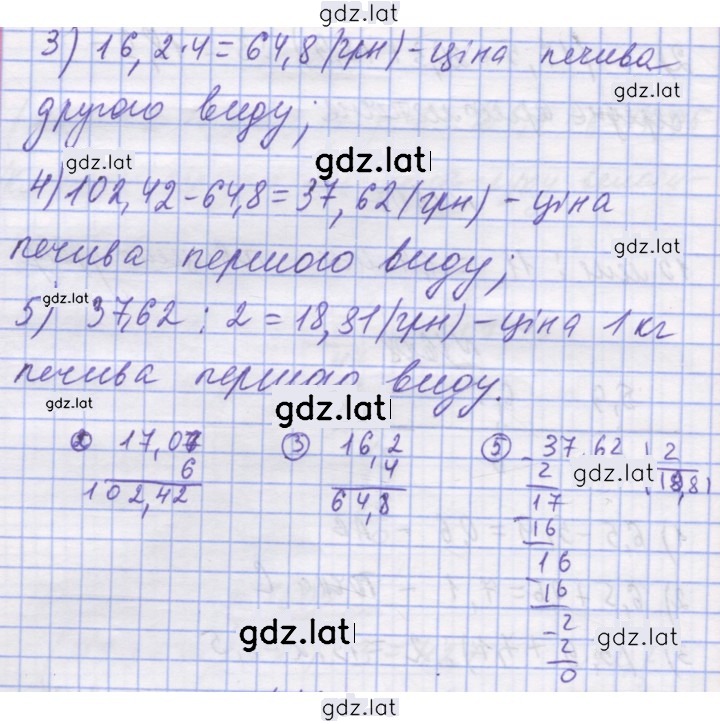 gdz.lat
3) 16,2·4=64,8(грн)-ціна печива
gdz.lat
другого виду;
gdz.lat
gdz.lat
4)102,42-64,8=37,62(грн)-ціна
gdz.lat
печива першого виду;
gdz.lat
5) 37,62 : 2 = 18,31(грн)-ціна 1 кг
печива першого виду.
gdz.lat
gdz.lat
② 17,07
6
102,42
③ 16,2
4
64,8
⑤ 37,62 2
gdz.lat
2
17
16
16
16
2
2
0
gdz.lat
gdz.lat
gdz.lat